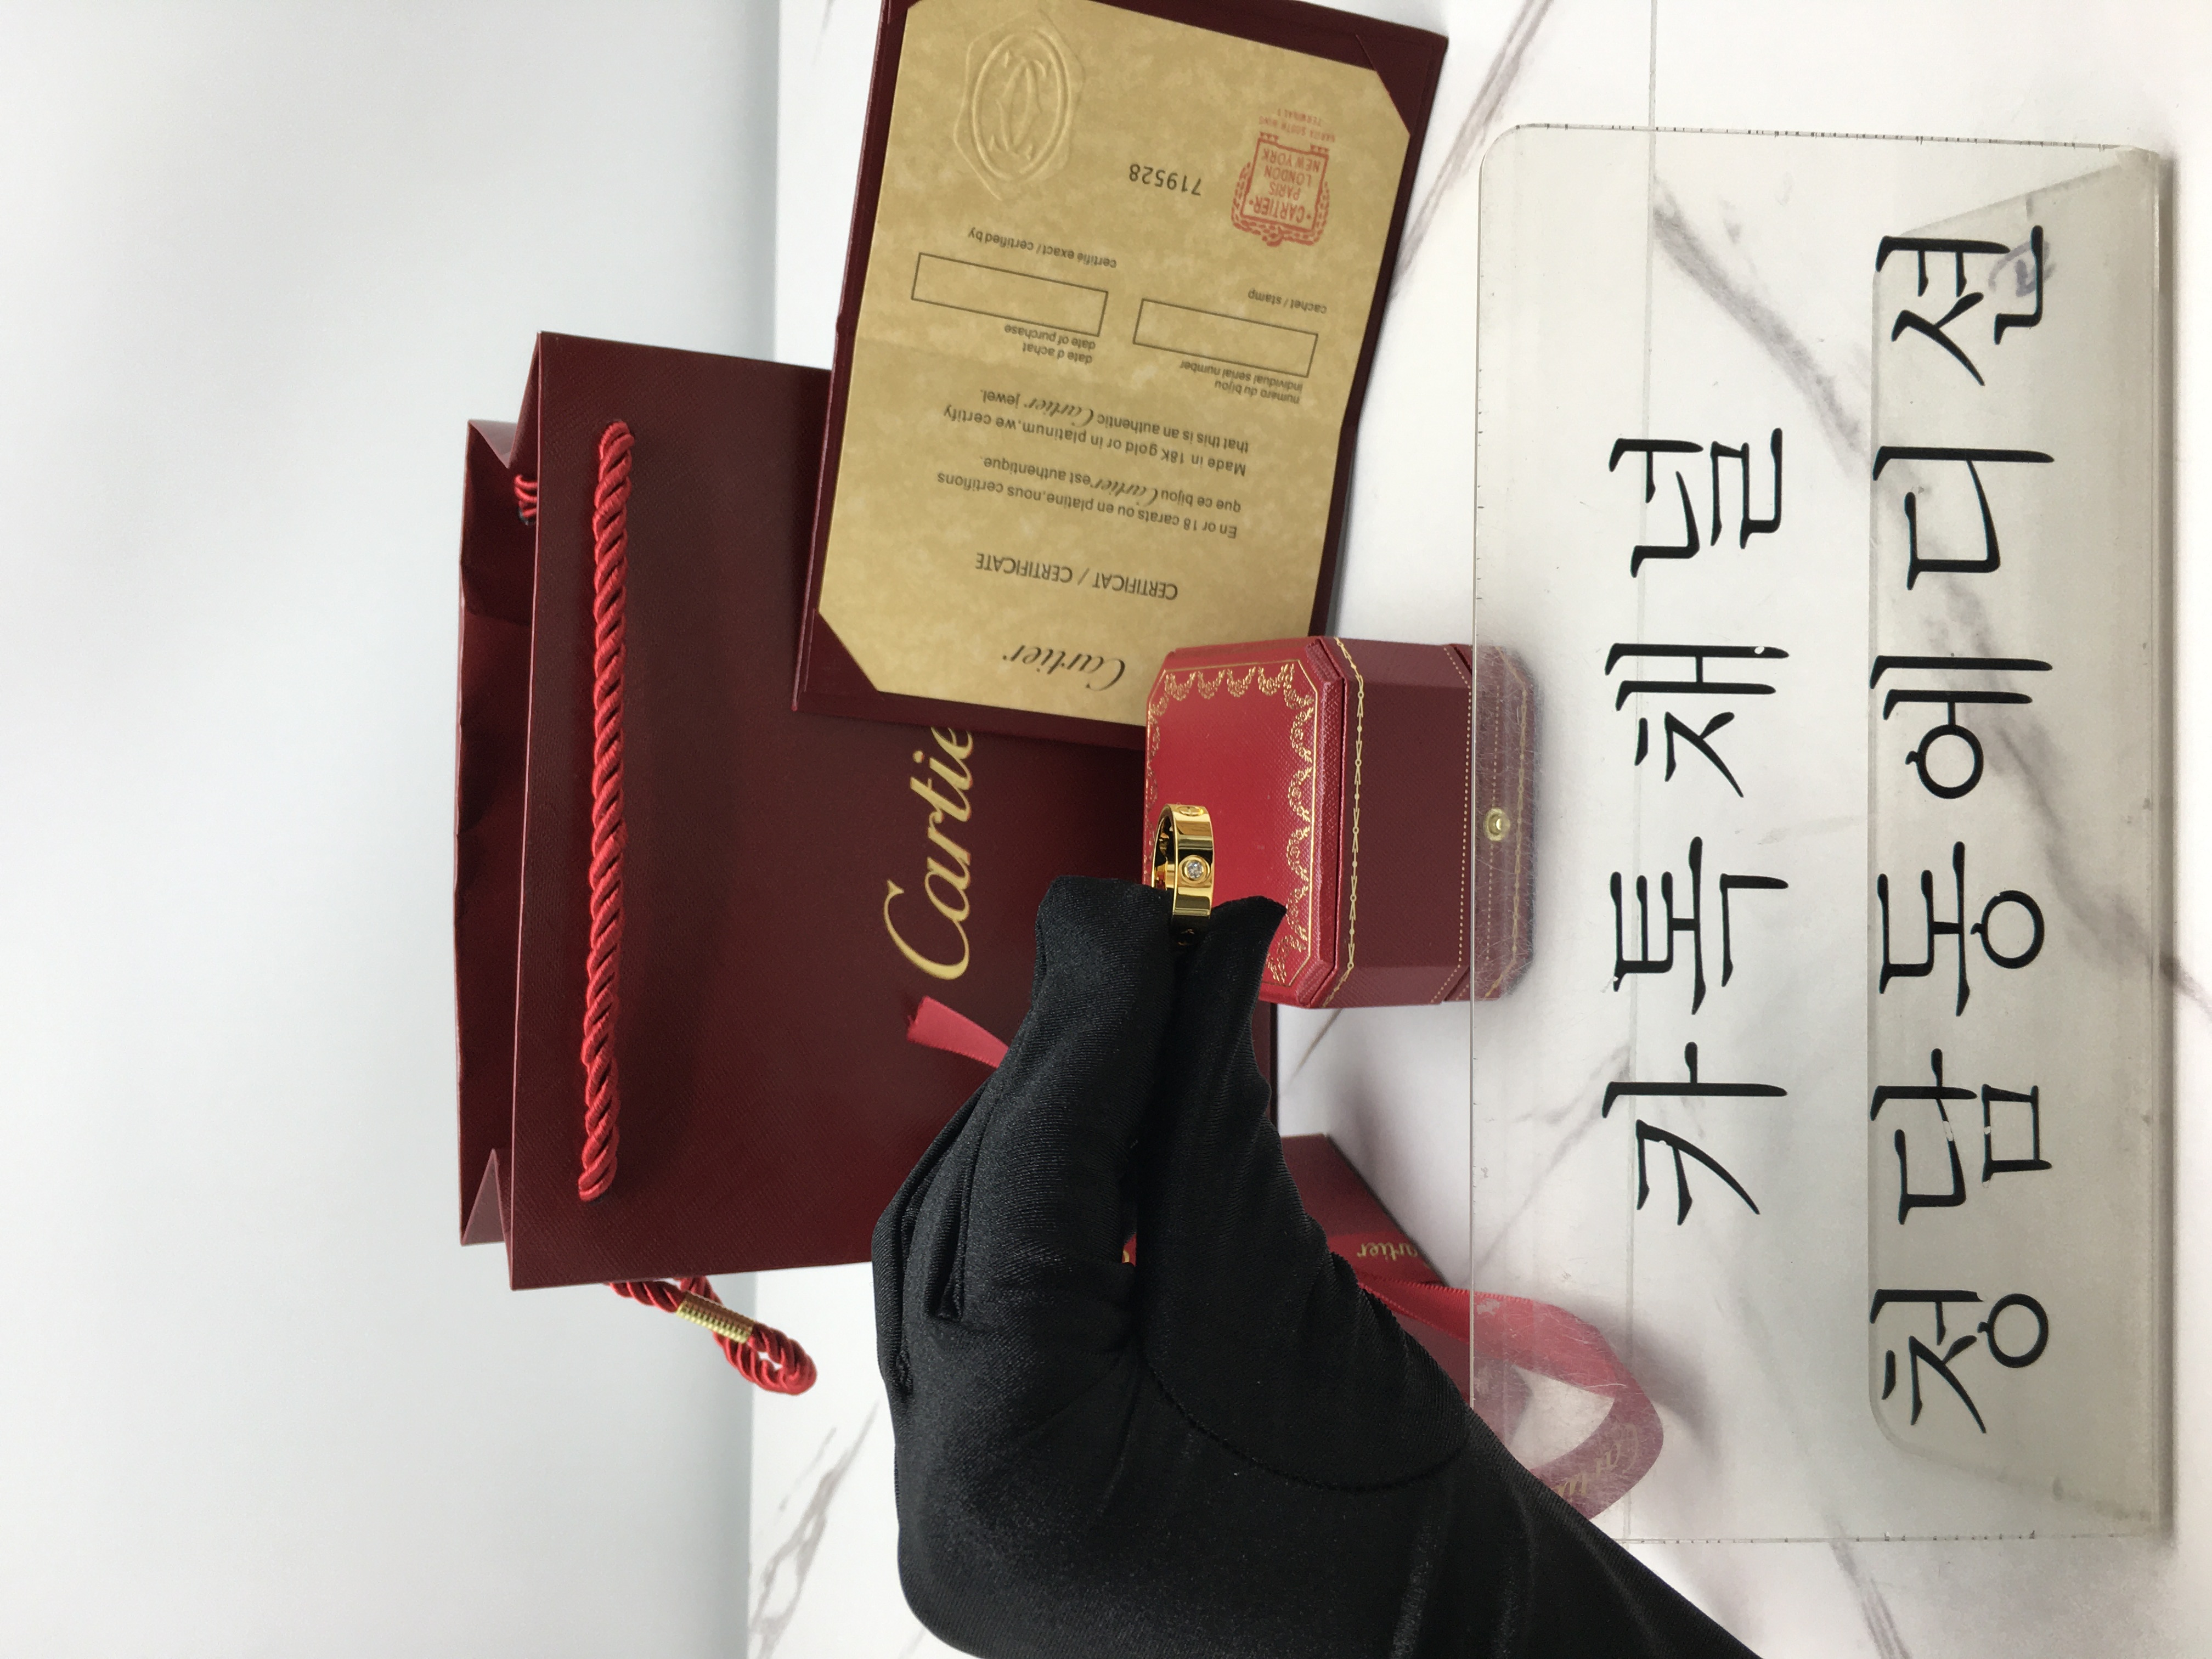 Cartier
Cartier
CERTIFICAT / CERTIFICATE
En or 18 carats ou en platine,nous certifions
que ce bijou Cartier est authentique.
Made in 18K gold or in platinum,we certify
that this is an authentic Cartier jewel.
numéro du bijou
individual serial number
date d achat
date of purchase
cachet / stamp
certifié exact / certified by
719528
CARTIER
PARIS
LONDON
NEW YORK
TERMINAL 1
Cartier
카톡채널
청담동에디션